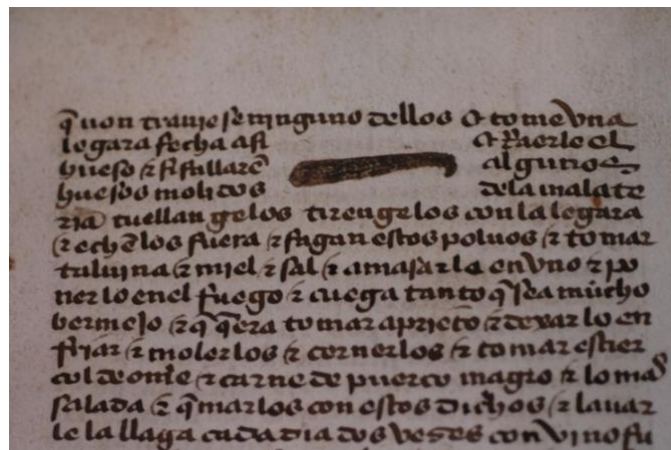 q̃ non travieſe ninguno dellos & tome vna
legara fecha aſi & raerle el
hueſo & ſi fallarẽ algunos
hueſos molidos dela malate
ria tuellan gelos tirengelos con la legara
& echẽlos fuera & fagan eſtos poluos & tomar
taluina & miel & ſal & amaſarla en vno & po
nerlo enel fuego & cuega tanto q̃ ſea mucho
bermejo & q̃ q̃era tomar aprieto & dexarlo en
friar & molerlos & cernerlos & tomar eſtier
col de om̃e & carne de puerco magro & lo mas
ſalada & q̃marlos con eſtos dichos & lauar
le la llaga cada dia dos veʒes con vino fu